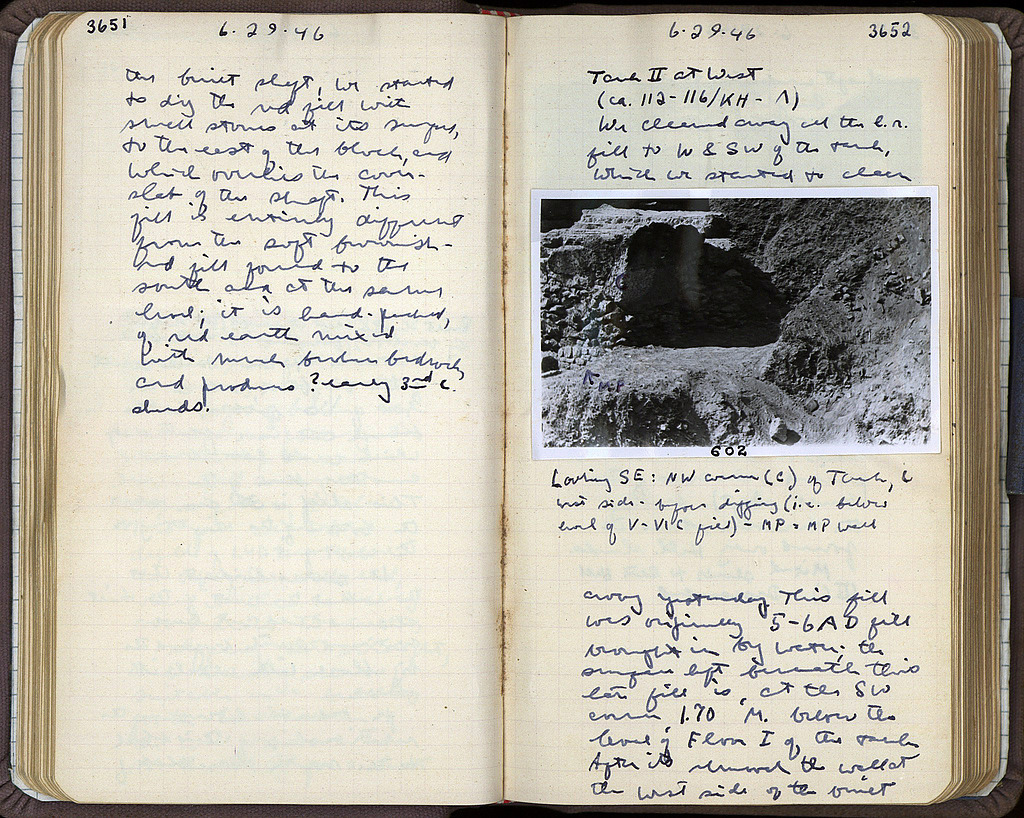 3651
6.29.46
the built shaft, we started
to dig the red fill with
small stones at its surface,
to the east of the block, and
which overlies the cover-
slab of the shaft. This
fill is entirely different
from the soft brownish-
red fill found to the
south and at the same
level; it is hard-packed,
of red earth mixed
with much broken bedrock,
and produces ? early 3rd c.
sherds.
6.29.46
3652
Tank II at West
(ca. 112-116/KH - Λ)
We cleared away all the l.r.
fill to W & SW of the tank,
which we started to clean
MP
602
Looking SE: NW corner (c) of Tank,
west side - before digging (i.e. below
level of V-VI C fill) - MP = MP wall
away yesterday. This fill
was originally 5-6 A D fill
brought in by water; the
surface left beneath this
late fill is, at the SW
corner 1.70 M. below the
level of Floor I of the tank
After its removal the wall at
the west side of the built